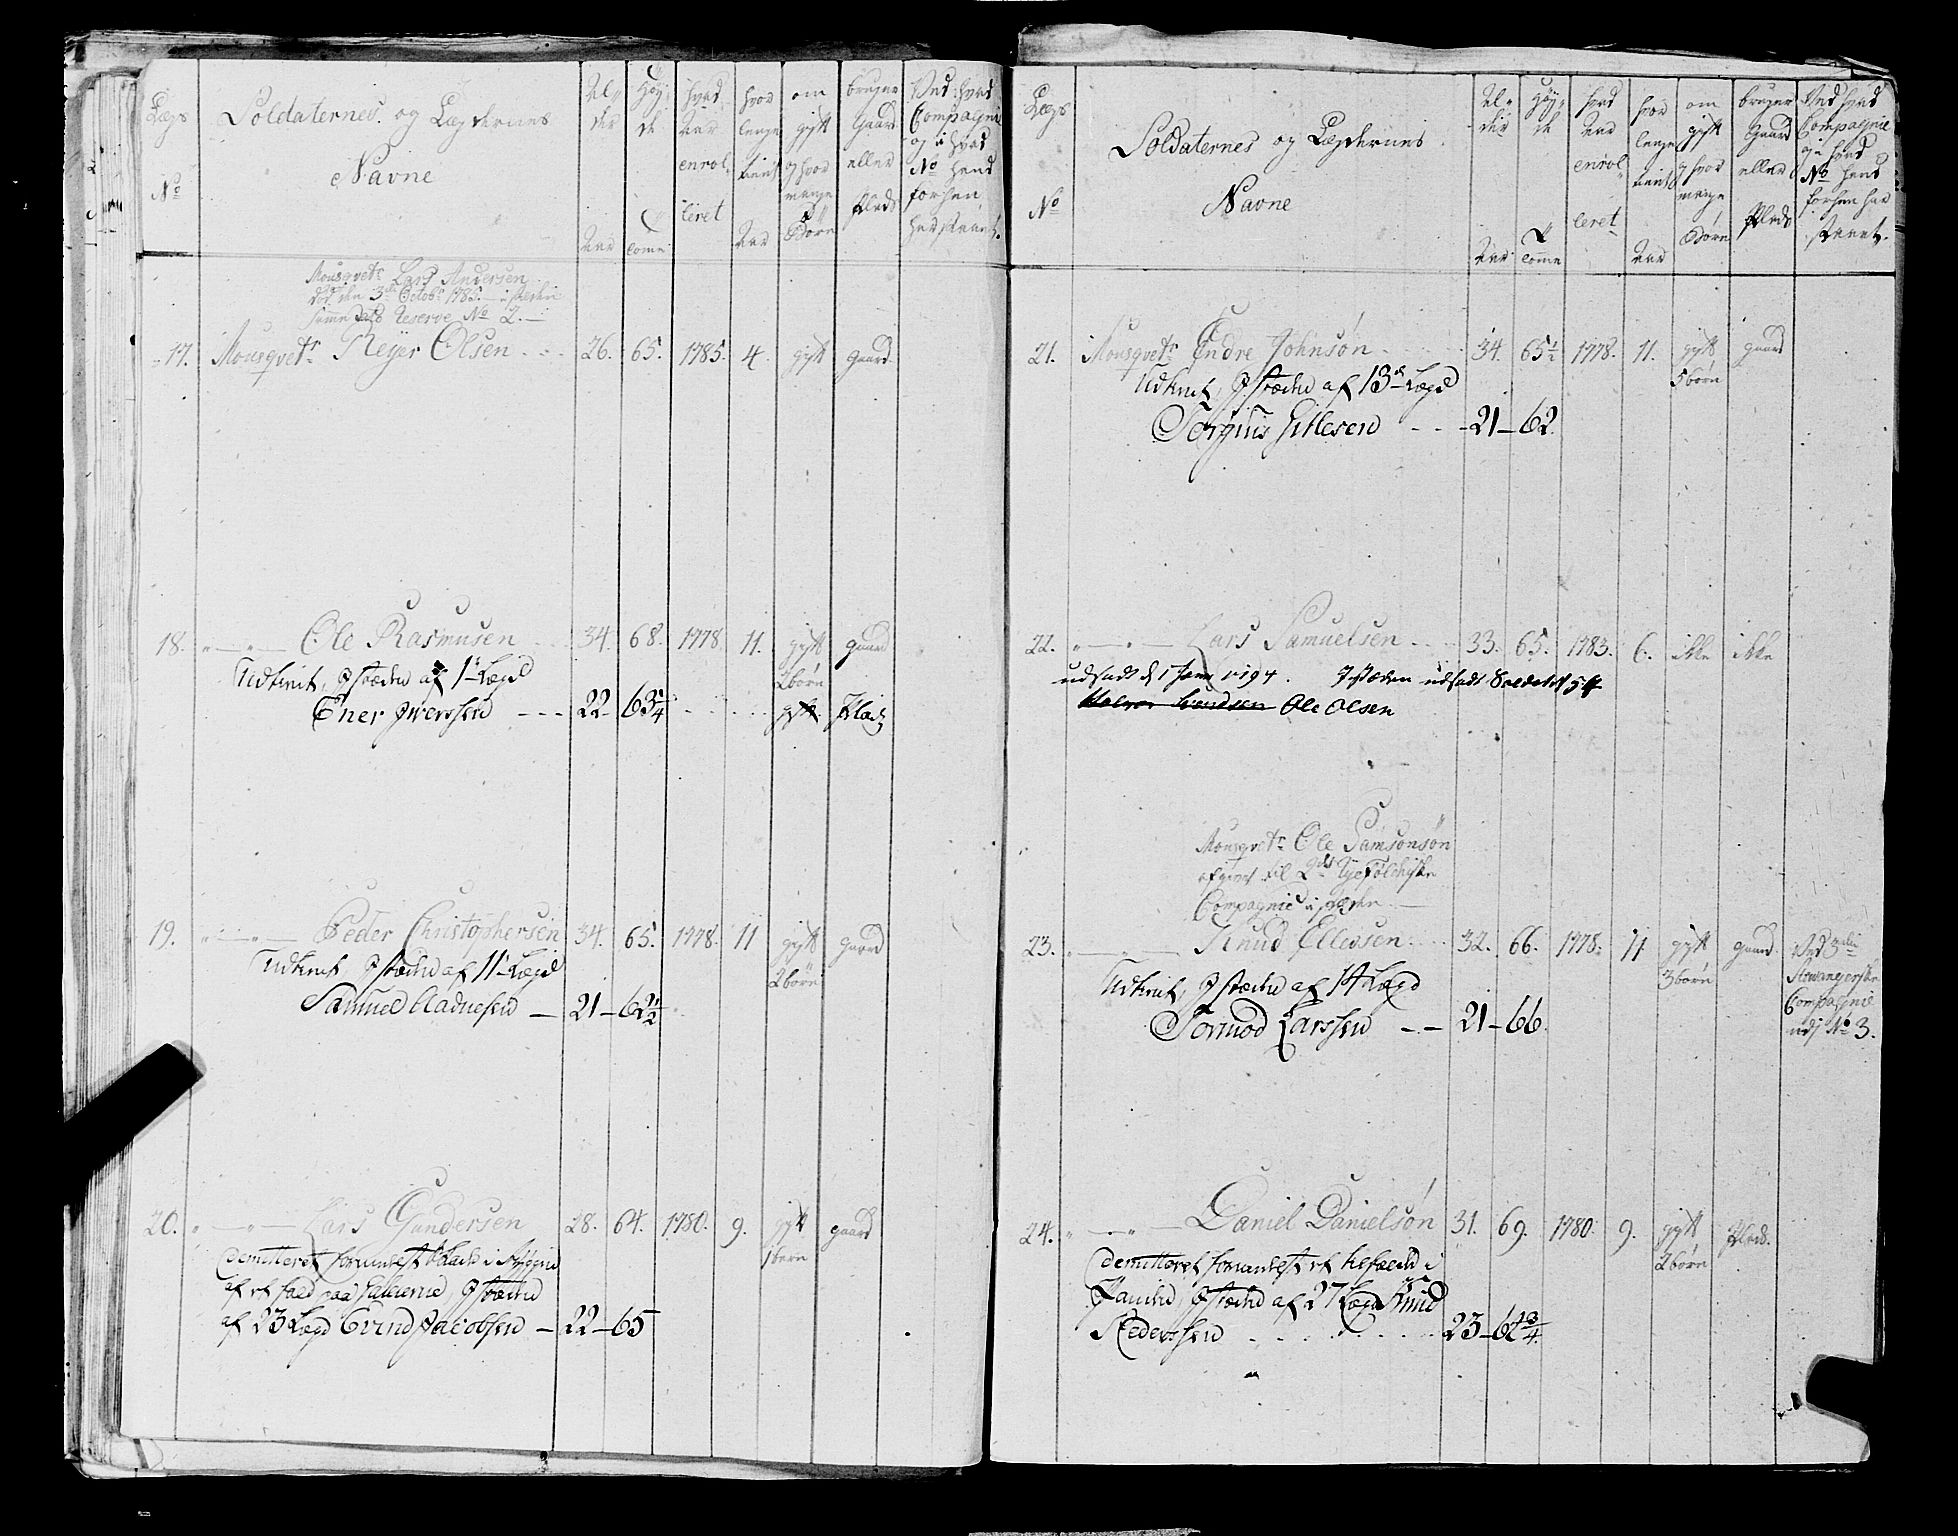 Lægs
No
Soldaternes og Lægdernes
Navne
Al-
der
Aar
Høy-
de
Tomme
hvad
Aar
enrol-
leret
hvor
lenge
tient
Aar
om
gift
og hvor
mange
Børn
bruger
Gaard
eller
Plads
Ved hvad
Compagnie
og i hvad
No hand
forhen
har staaet.
Mousqvetr Lars Andersen
død den 3die Octobr 1785. i steden
samme dato Reserve No 2.
17. Mousqvetr Reyer Olsen 26. 65. 1785. 4. gift gaard
18. Ole Rasmusen 34. 68. 1778 11. gift gaard
2 børn
Udtient, I stæden af 1 Lægd
Ener Iverssen 22 63 1/4 gift Plads
19. Peder Christophersen 34. 65. 1778. 11 gift gaard
2 børn
Udtient I stæden af 11 Lægd
Samuel Aadnesen 21 62 1/2
20. Lars Gundersen 28. 64. 1780. 9. gift gaard
1 barn
demitteret formedelst Skade i Ryggen
af et fald paa, I stæden
af 23 Lægd Evind Jacobsen 22 65
Lægs
No
Soldaternes og Lægdernes
Navne
Al-
der
Aar
Høy-
de
Tomme
hvad
Aar
enrol-
leret
hvor
lenge
tient
Aar
om
gift
og hvor
mange
Børn
bruger
Gaard
eller
Plads
Ved hvad
Compagnie
og i hvad
No hand
forhen har
staaet.
21. Mousqvetr Endre Johnsøn 34. 65 1/2 1778. 11. gift gaard
5 børn
Udtient, I stæden af 13de Lægd
Torgius Eillesen 21 62.
22. Lars Samuelsen 33. 65. 1783. 6. ikke ikke
udsadt d 1 Janr 1794. I stæden udsadt Soldatst 54
Ole Olsen
Mousqvetr Ole Samsonsøn
afgivet til 2det Ryefølchiske
Compagnie i steden
23. Knud Ellevsen 32. 66. 1778. 11 gift gaard Ved 3die
3 børn Stavangerske
Compagnie
udj No 3.
Udtient, I stæden af 14 Lægd
Tormod Larssen 21 66.
24. Daniel Danielsøn 31. 69. 1780. 9. gift Plads.
2 børn
demitteret formedelst et
Panden, I stæden af 27 Lægd Knud
Pederssen 23 62 3/4